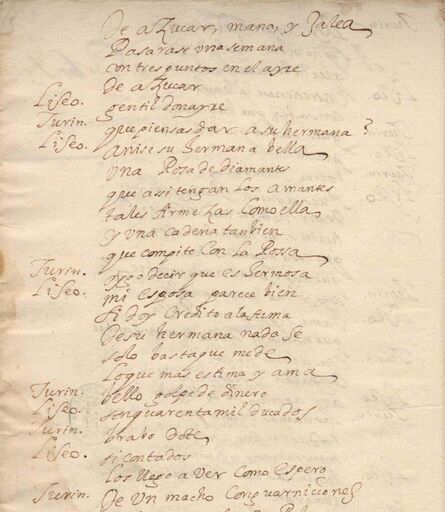 De aZucar, mana, y Jalea
Pasarase una semana
con tres puntos en el ayre
de aZucar
Liseo. gentil donayre
Turin. que piensas dar a su hermana?
Liseo. A nise su hermana bella
una Rosa de diamantes
que assi tengan los amantes
tales firmeZas como ella
y una cadena tanbien
que compite con la Rossa
Turin. yo o decir que es hermosa
Liseo. mi esposa parece bien
si doy credito a la fama
de su hermana nada se
solo basta que me de
lo que mas estima y ama
Turin. bello golpe de dinero
Liseo. son quarenta mil ducados
Turin. brabo dote
Liseo. si contados
los llego a ver como espero
Turin. De un macho con guarniciones